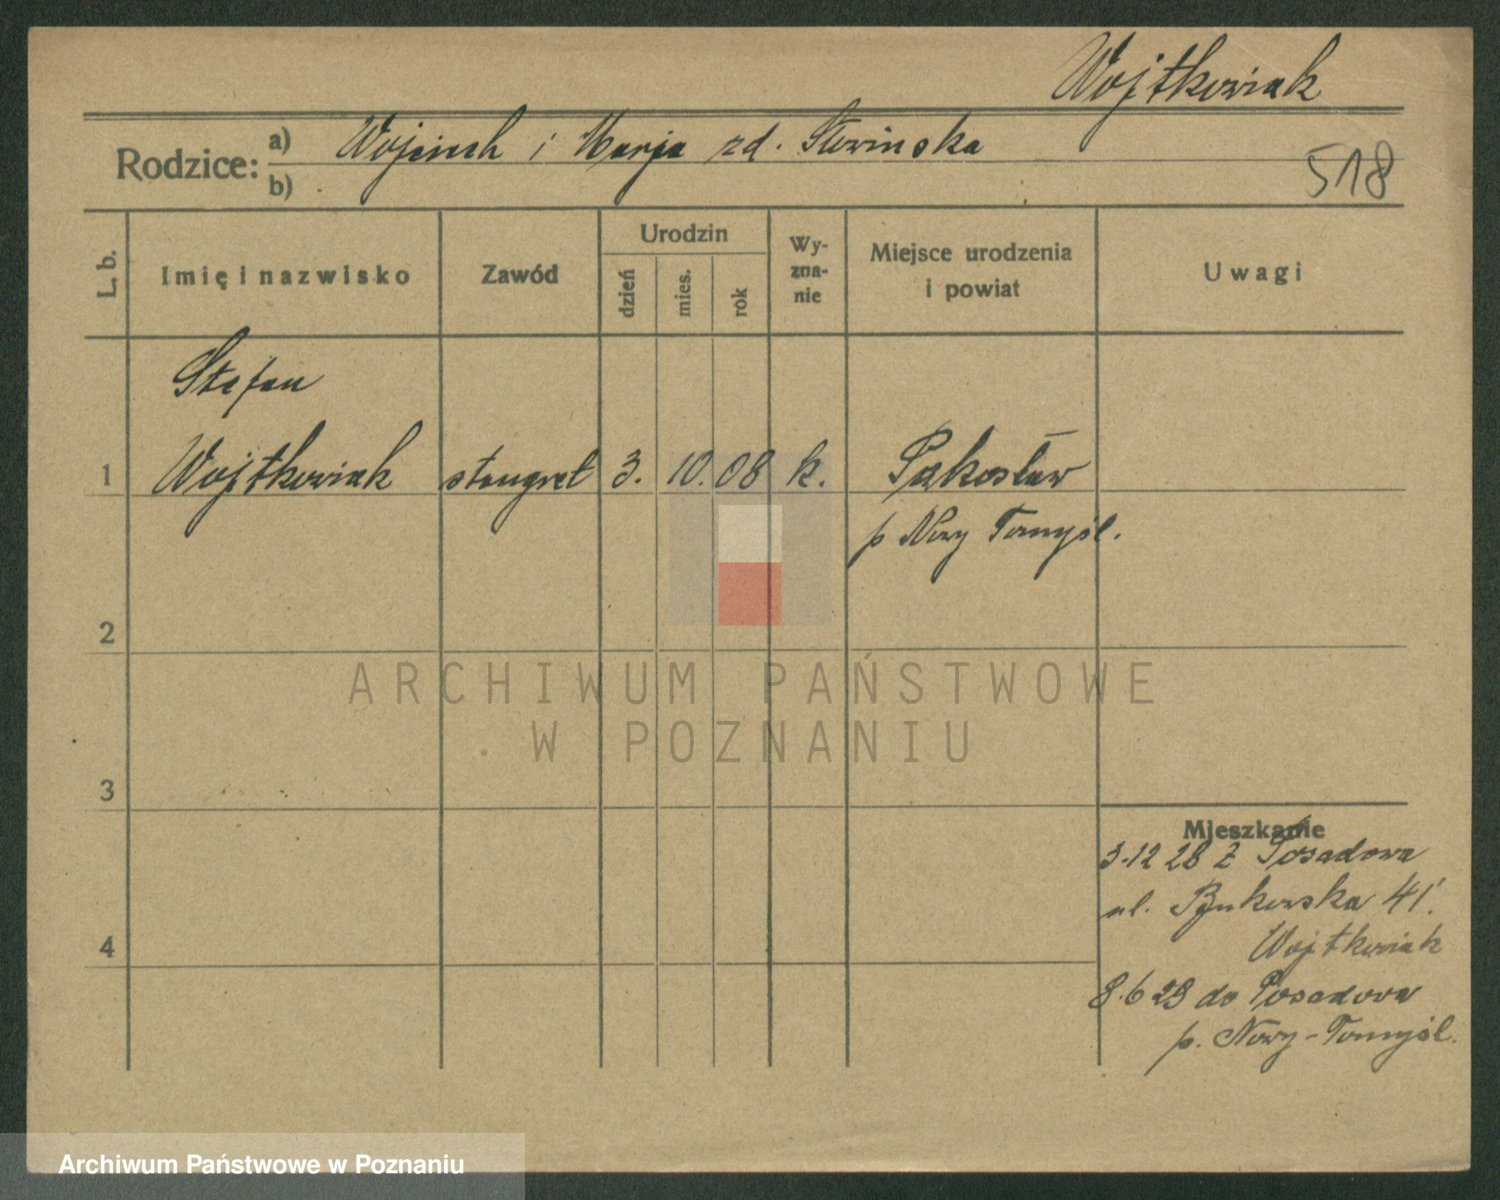 Wojtkowiak
Rodzice: a) Wojciech i Marja zd. Słowinska
b)
518
L. b.
Imię i nazwisko
Zawód
Urodzin
dzień
mies.
rok
Wy-
zna-
nie
Miejsce urodzenia
i powiat
Uwagi
Stefan
1 Wojtkowiak stangret 3. 10. 08 k. Pakosław
p Nowy Tomyśl.
2
3
4
Mieszkanie
3.12 28 z Posadowa
ul. Bukowska 41.
Wojtkowiak
8.6 29 do Posadowa
p. Nowy-Tomyśl.
ARCHIWUM PAŃSTWOWE
W POZNANIU
Archiwum Państwowe w Poznaniu